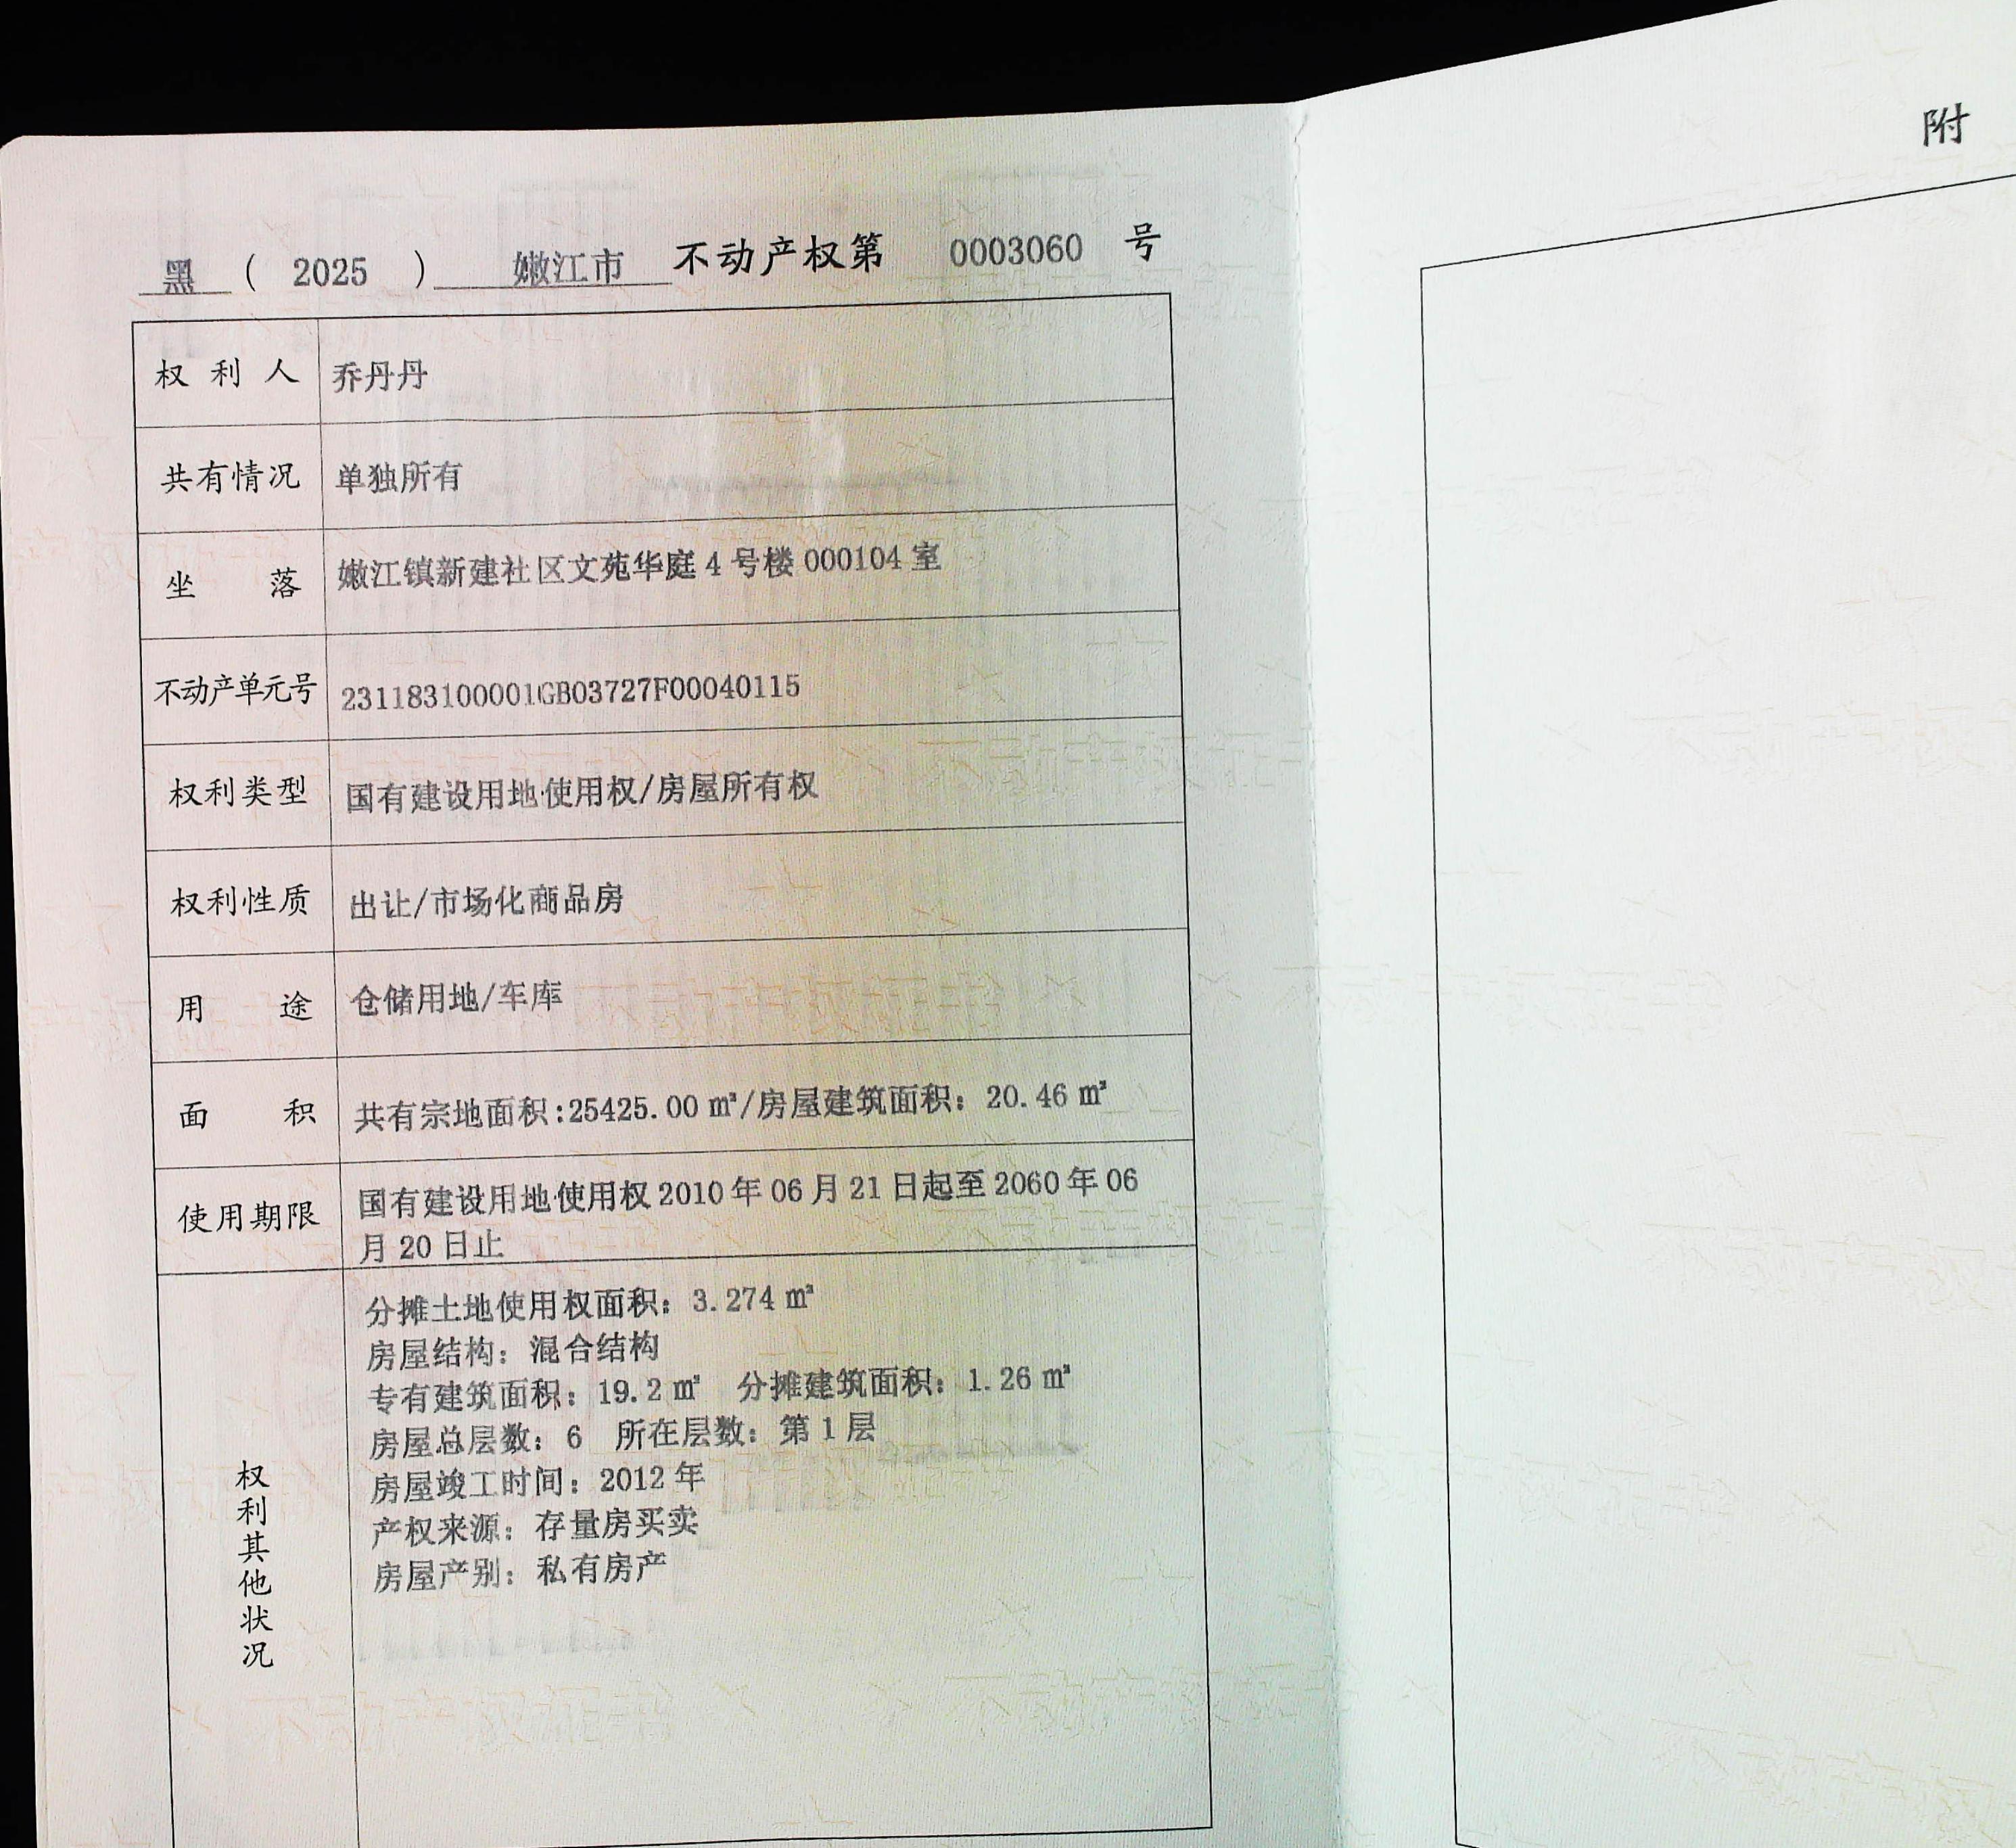 黑 ( 2025 ) 嫩江市 不动产权第 0003060 号
附
权利人 乔丹丹
共有情况 单独所有
坐落 嫩江镇新建社区文苑华庭4号楼000104室
不动产单元号 231183100001GB03727F00040115
权利类型 国有建设用地使用权/房屋所有权
权利性质 出让/市场化商品房
用途 仓储用地/车库
面积 共有宗地面积:25425.00㎡/房屋建筑面积：20.46㎡
使用期限 国有建设用地使用权2010年06月21日起至2060年06
月20日止
权利其他状况
分摊土地使用权面积：3.274㎡
房屋结构：混合结构
专有建筑面积：19.2㎡ 分摊建筑面积：1.26㎡
房屋总层数：6 所在层数：第1层
房屋竣工时间：2012年
产权来源：存量房买卖
房屋产别：私有房产